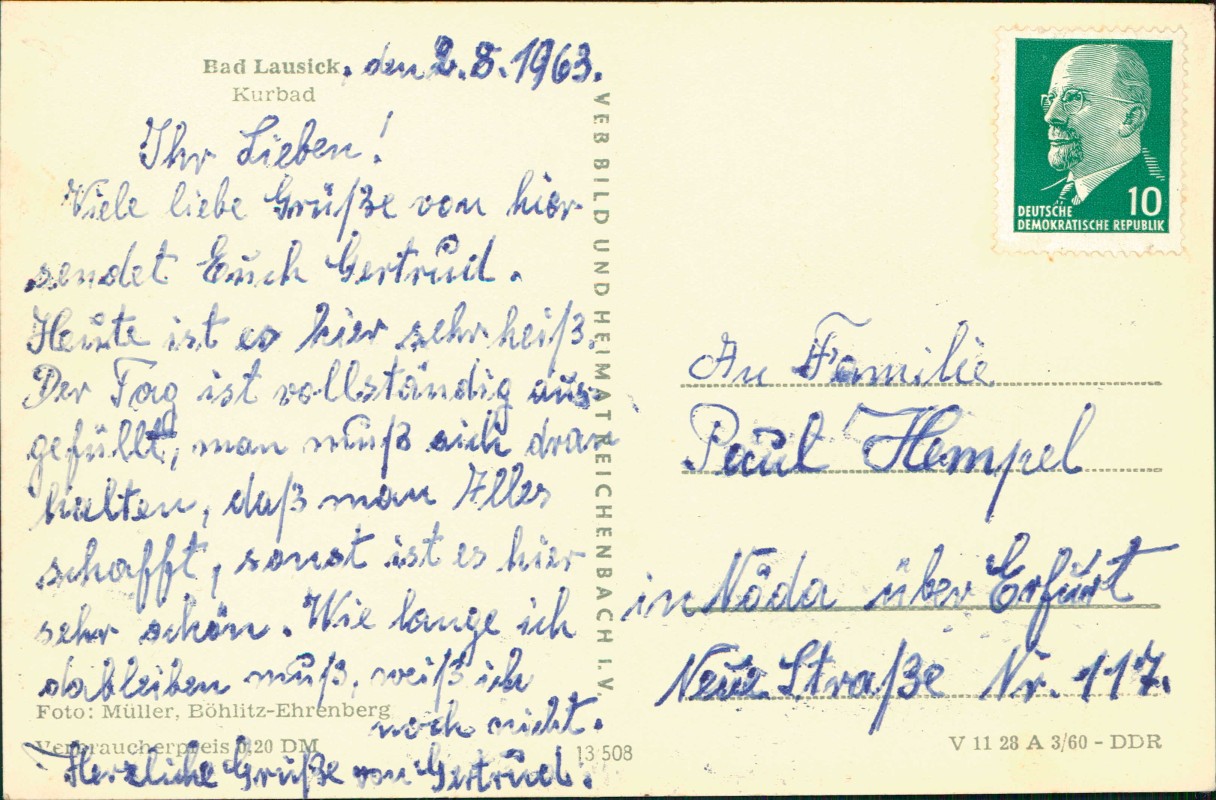 Bad Lausick, den 2.8.1963.
Kurbad
Ihr Lieben!
Viele liebe Grüße von hier
sendet Euch Gertrud.
Heute ist es hier sehr heiß.
Der Tag ist vollständig aus-
gefüllt, man muß sich dran
halten, daß man Alles
schafft, sonst ist es hier
sehr schön. Wie lange ich
dableiben muß, weiß ich
noch nicht.
Herzliche Grüße von Gertrud.
Foto: Müller, Böhlitz-Ehrenberg
Verbraucherpreis 0,20 DM
VEB BILD UND HEIMAT REICHENBACH I. V.
13 508
10
DEUTSCHE
DEMOKRATISCHE REPUBLIK
An Familie
Paul Hempel
in Nöda über Erfurt
Neue Straße Nr. 117.
V 11 28 A 3/60 - DDR